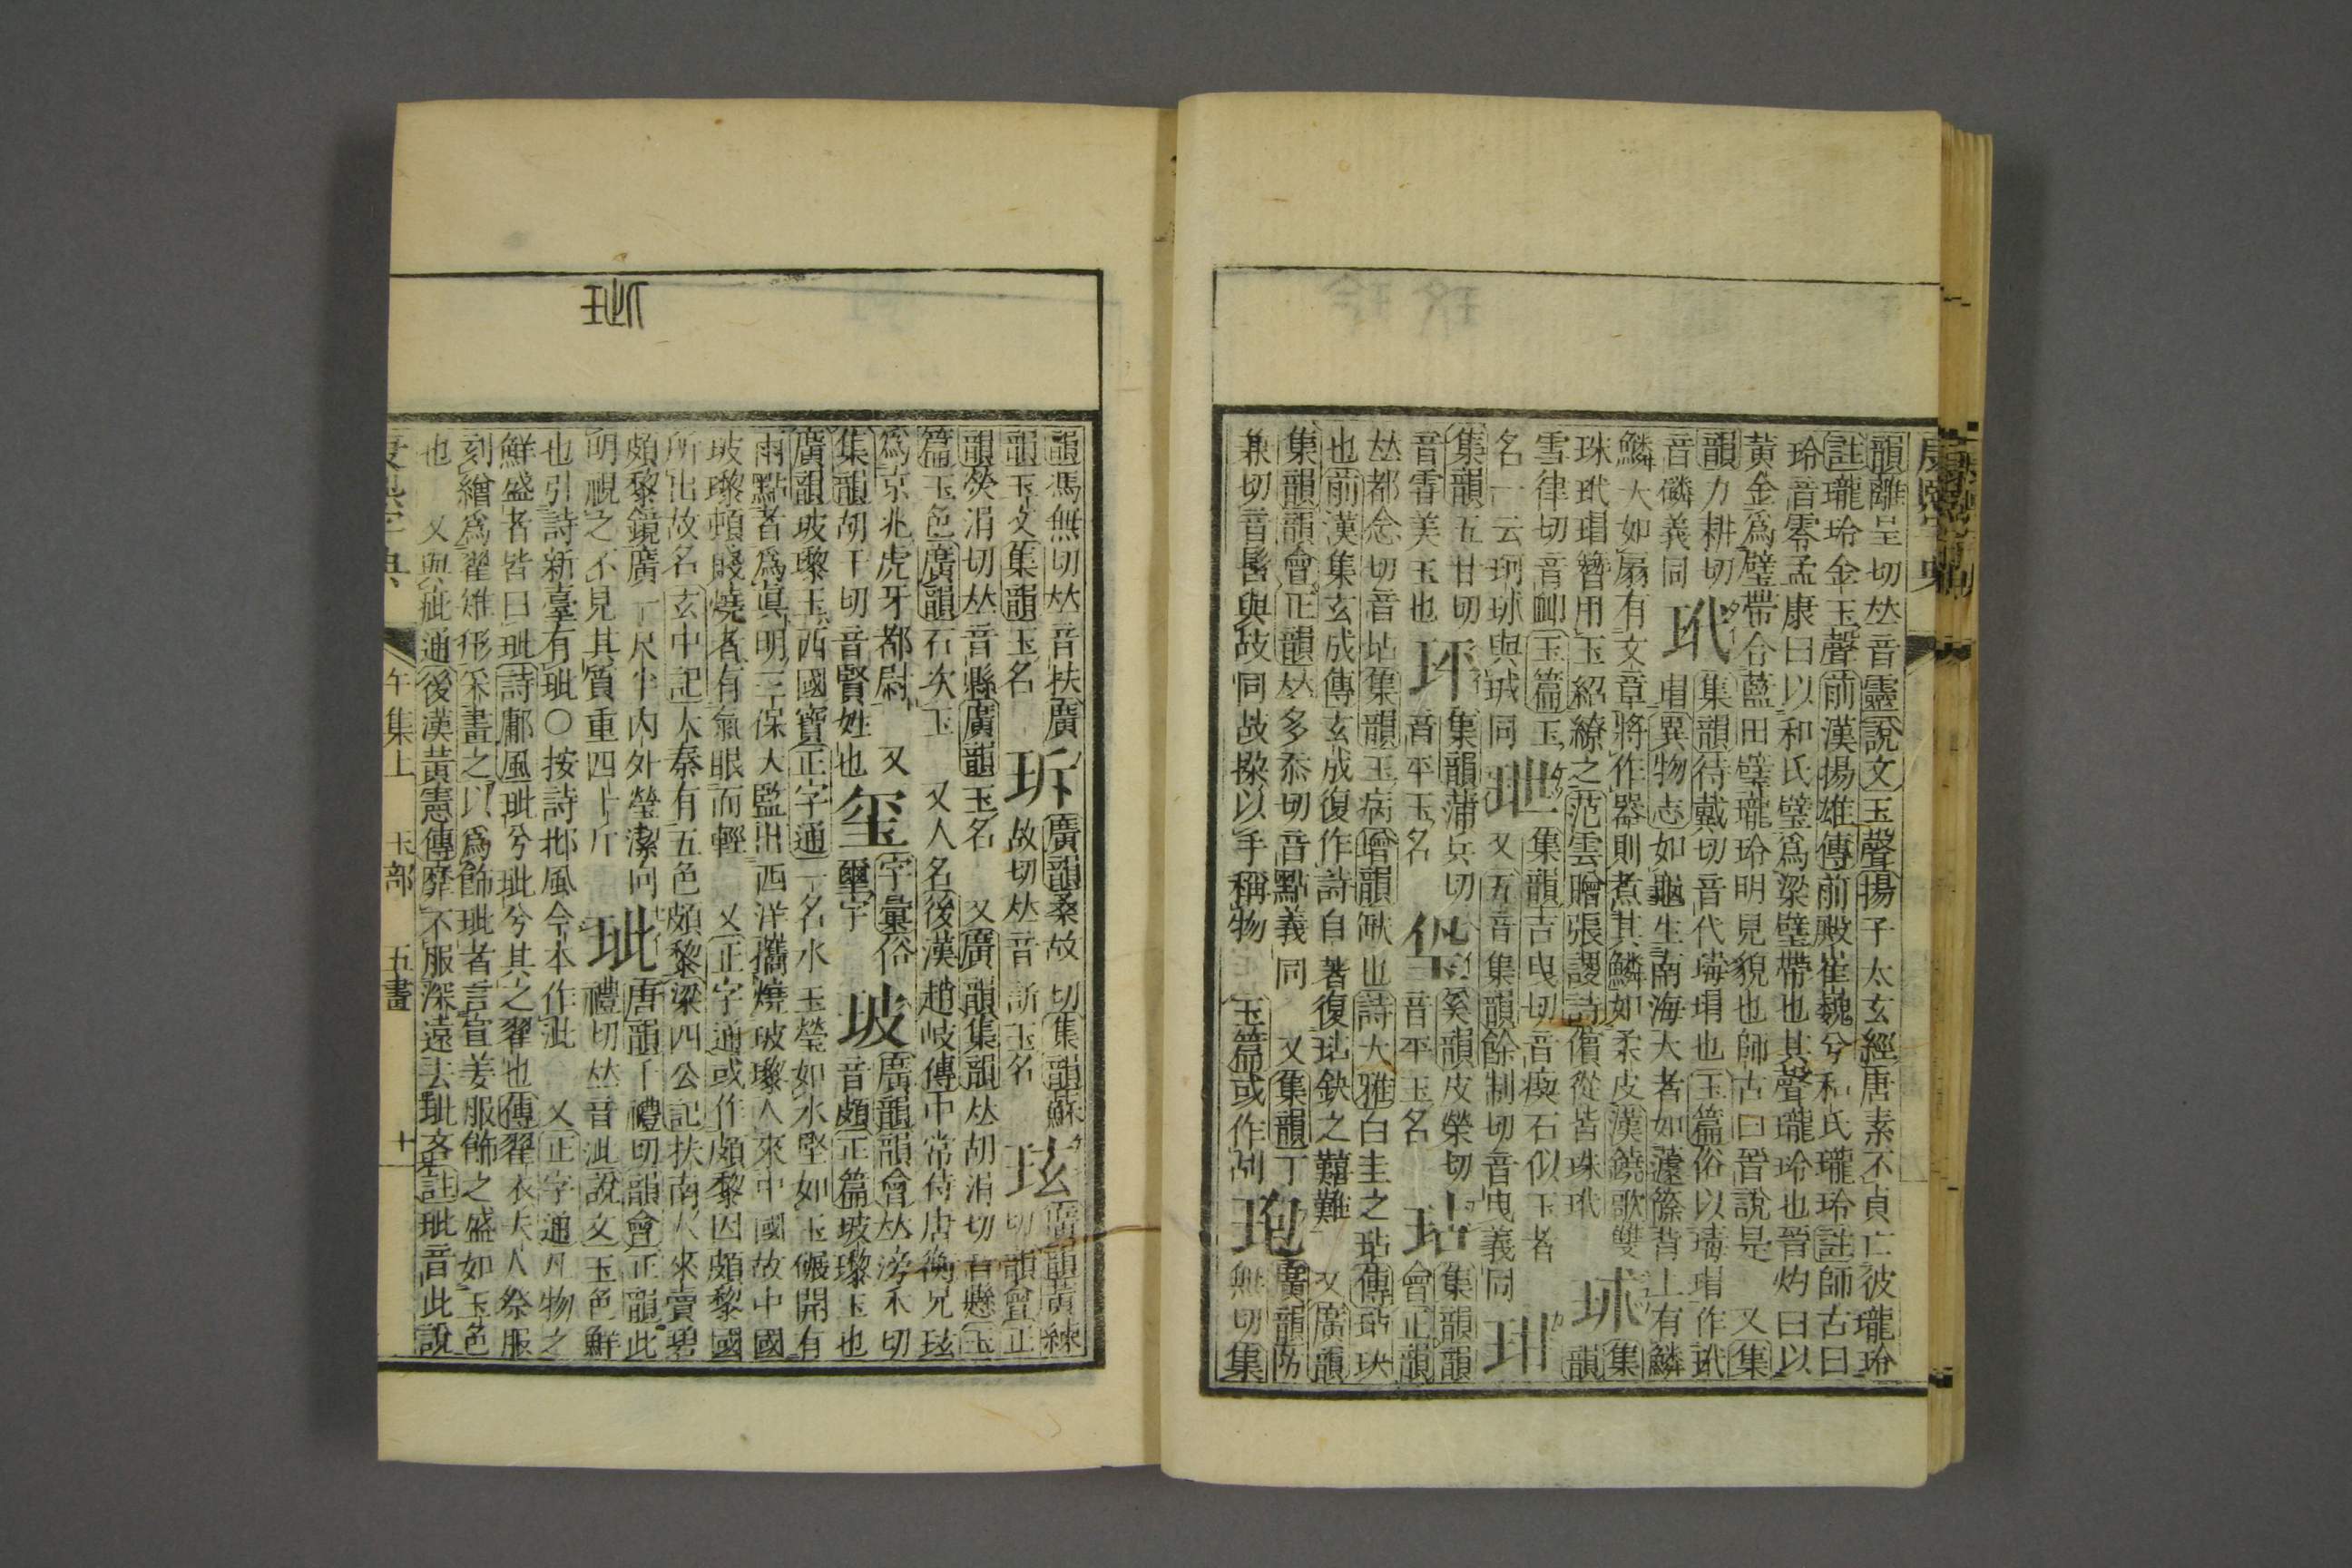 康熙字典
韻離呈切𠀤音靈說文玉聲揚子太玄經唐素不貞亡彼瓏玲
註瓏玲金玉聲前漢揚雄傳前殿崔巍兮和氏瓏玲註師古曰
玲音零孟康曰以和氏璧爲梁璧帶也其聲瓏玲也晉灼曰以
黃金爲璧帶含藍田璧瓏玲明見貌也師古曰晉說是 又集
韻力耕切 玳 集韻待戴切音代瑇瑁也玉篇俗以瑇瑁作玳
音磷義同 瑁異物志如龜生南海大者如籧篨背上有鱗
鱗大如扇有文章將作器則煮其鱗如柔皮漢鐃歌雙 珬 集
珠玳瑁簪用玉紹繚之范雲贈張謖詩儐從皆珠玳 韻
雪律切音䘏玉篇玉 玴 集韻吉曳切音瘈石似玉者
名一云珂珬與珹同 又五音集韻餘制切音曳義同 玵
集韻五甘切 玶 集韻蒲兵切 奚韻皮榮切 玷 集韻韻
音雪美玉也 音平玉名 音平玉名 會正韻
𠀤都念切音坫集韻玉病增韻缺也詩大雅白圭之玷傳玷玦
也前漢韋玄成傳玄成復作詩自著復玷缺之艱難 又廣韻
集韻韻會正韻𠀤多忝切音點義同 又集韻丁 玸 廣韻防
兼切音髻與故同故㪜以手稱物 玉篇或作刮 無切集
韻馮無切𠀤音扶廣 玜 廣韻桑故切集韻蘇 玹 廣韻黃練
韻玉文集韻玉名 故切𠀤音訴玉名 切韻會正
韻熒涓切𠀤音縣廣韻玉名 又廣韻集韻𠀤胡涓切音懸玉
篇玉色廣韻石次玉 又人名後漢趙岐傳中常侍唐衡兄玹
爲京兆虎牙都尉 又 玺 字彙俗 玻 廣韻韻會𠀤滂禾切
集韻胡千切音賢姓也 璽字 音頗正篇玻瓈玉也
廣韻玻瓈玉西國寶正字通一名水玉瑩如水堅如玉碾開有
雨點者爲眞明三保大監出西洋攜燒玻瓈人來中國故中國
玻瓈頓賤燒者有氣眼而輕 又正字通或作頗黎因頗黎國
所出故名玄中記大秦有五色頗黎梁四公記扶南人來賣碧
頗黎鏡廣一尺半內外瑩潔向 玼 唐韻千禮切韻會正韻此
明視之不見其質重四十斤 禮切𠀤音泚說文玉色鮮
也引詩新臺有玼〇按詩邶風今本作泚 又正字通凡物之
鮮盛者皆曰玼詩鄘風玼兮玼兮其之翟也傳翟衣夫人祭服
刻繒爲翟雉形采畫之以爲飾玼者言宣姜服飾之盛如玉色
也 又與疵通後漢黃憲傳靡不服深遠去玼吝註玼音此說
午集上 玉部 五畫 十